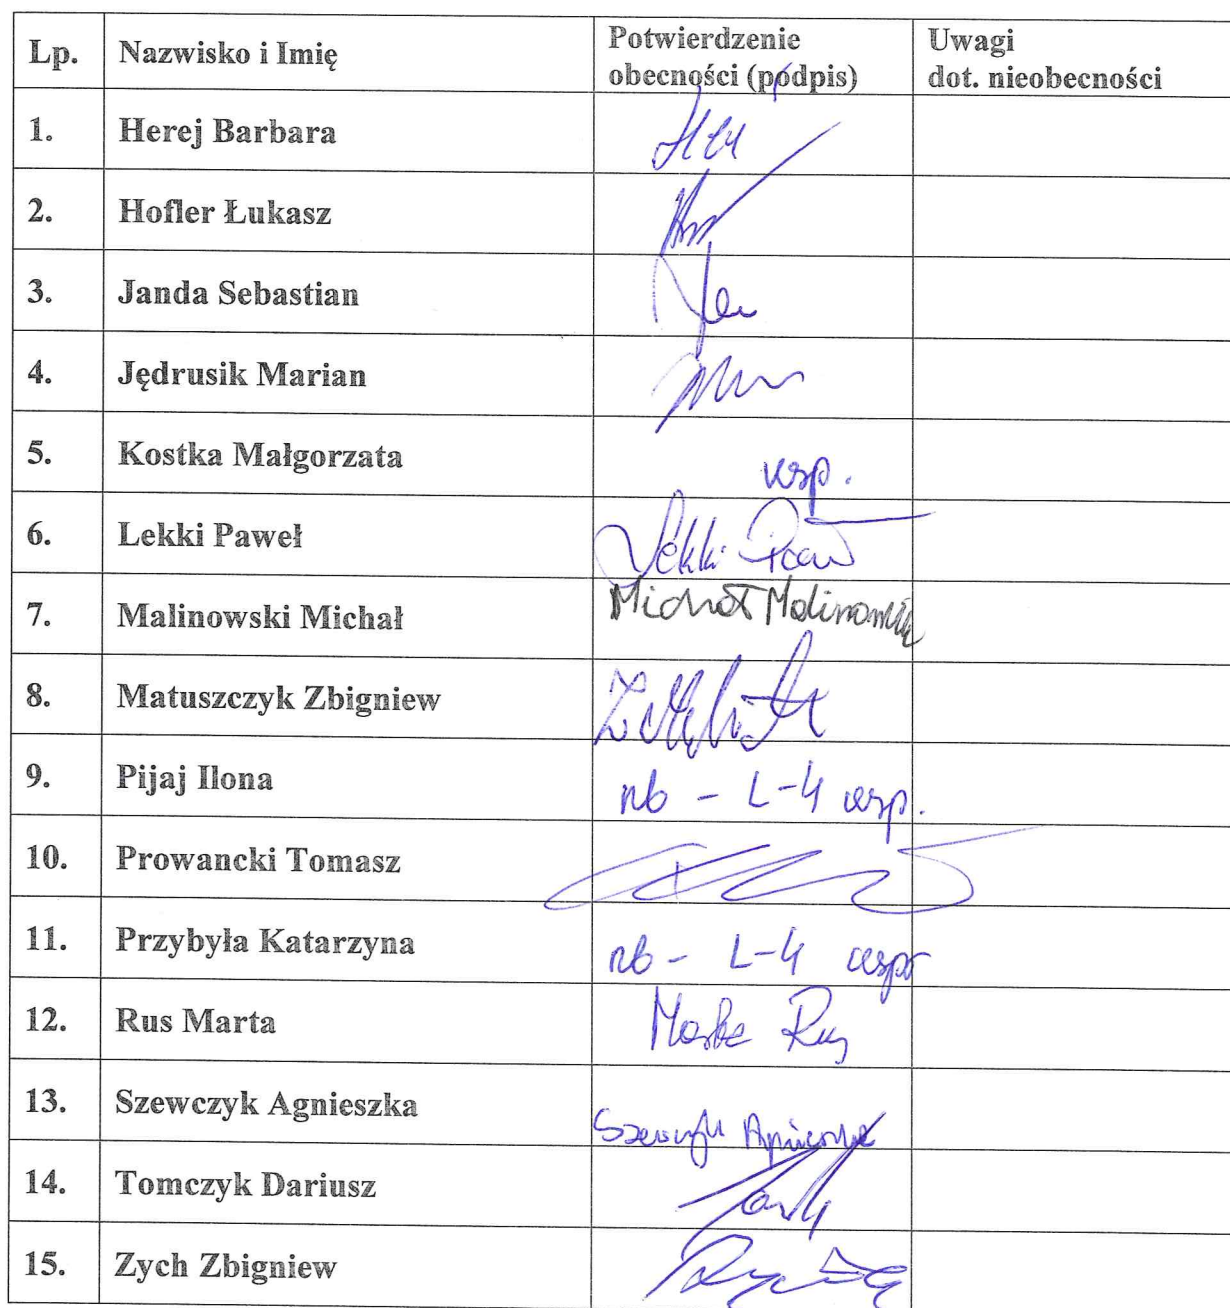 Lp. Nazwisko i Imię Potwierdzenie obecności (podpis) Uwagi dot. nieobecności
1. Herej Barbara
2. Hofler Łukasz
3. Janda Sebastian
4. Jędrusik Marian
5. Kostka Małgorzata usp.
6. Lekki Paweł Lekki Paweł
7. Malinowski Michał Michał Malinowski
8. Matuszczyk Zbigniew
9. Pijaj Ilona nb - L-4 usp.
10. Prowancki Tomasz
11. Przybyła Katarzyna nb - L-4 usp
12. Rus Marta Marta Rus
13. Szewczyk Agnieszka Szewczyk Agnieszka
14. Tomczyk Dariusz
15. Zych Zbigniew